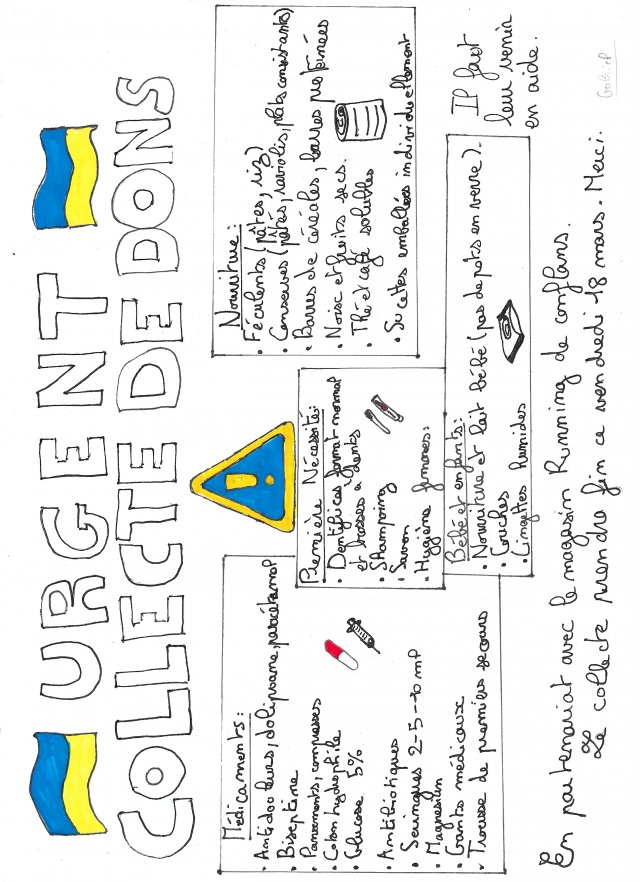 URGENT
COLLECTE DE DONS
Médicaments:
• Antidouleurs, doliprane, paracétamol
• Biseptine
• Pansements, compresses
• Coton hydrophile
• Glucose 5%
• Antibiotiques
• Seringues 2-5-10 ml
• Magnesium
• Gants médicaux
• Trousse de premiers secours
Première Nécessité:
• Dentifrice format normal
et brosses à dents
• Shampoing
• Savon
• Hygiène femmes:
Nourriture:
• Féculents (pâtes, riz)
• Conserves (pâtés, raviolis, plats consistants)
• Barres de céréales, barres protéinées
• Noix et fruits secs.
• Thé et café solubles
• Sucettes emballées individuellement
Bébé et enfants:
• Nourriture et lait bébé (pas de pots en verre).
• Couches
• Lingettes humides
Il faut
leur venir
en aide.
En partenariat avec le magasin Running de conflans.
La collecte prendre fin ce vendredi 18 mars. Merci.